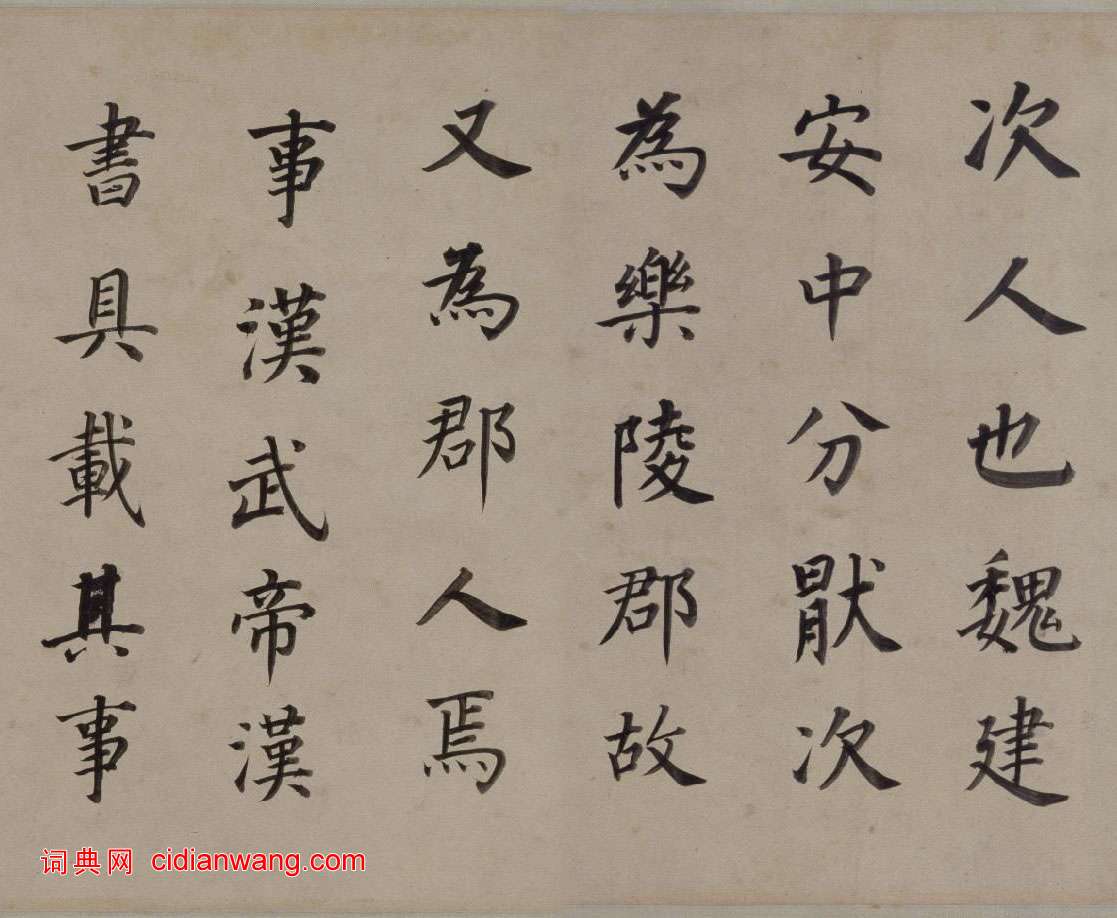 次人也魏建
安中分猒次
為樂陵郡故
又為郡人焉
事漢武帝漢
書具載其事
词典网 cidianwang.com